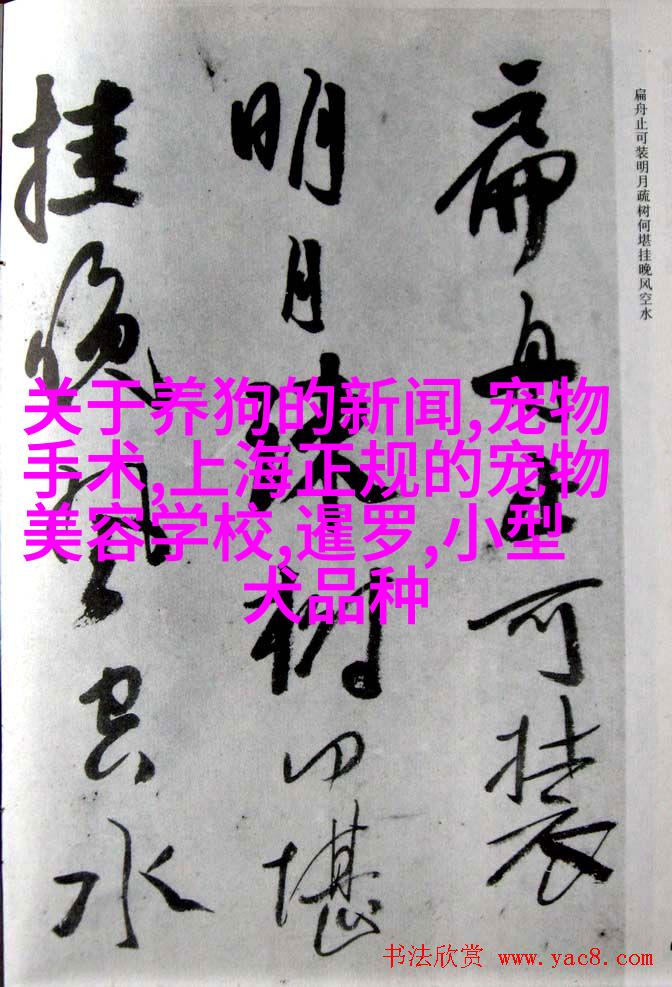 扁舟止可装
明月疏树何堪
挂晚风空水
扁舟止可装明月疏树何堪挂晚风空水
关于养狗的新闻,宠物
手术,上海正规的宠物
美容学校,暹罗,小型
犬品种
书法欣赏 www.yac8.com